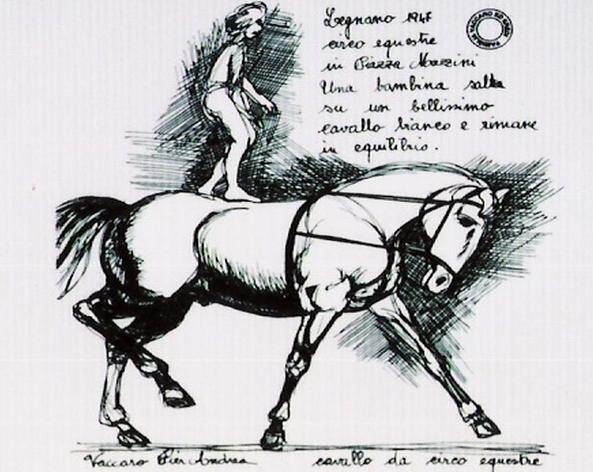 Legnano 1947
circo equestre
in Piazza Mazzini
Una bambina salta
su un bellissimo
cavallo bianco e rimane
in equilibrio.
Vaccaro Pier Andrea
cavallo da circo equestre